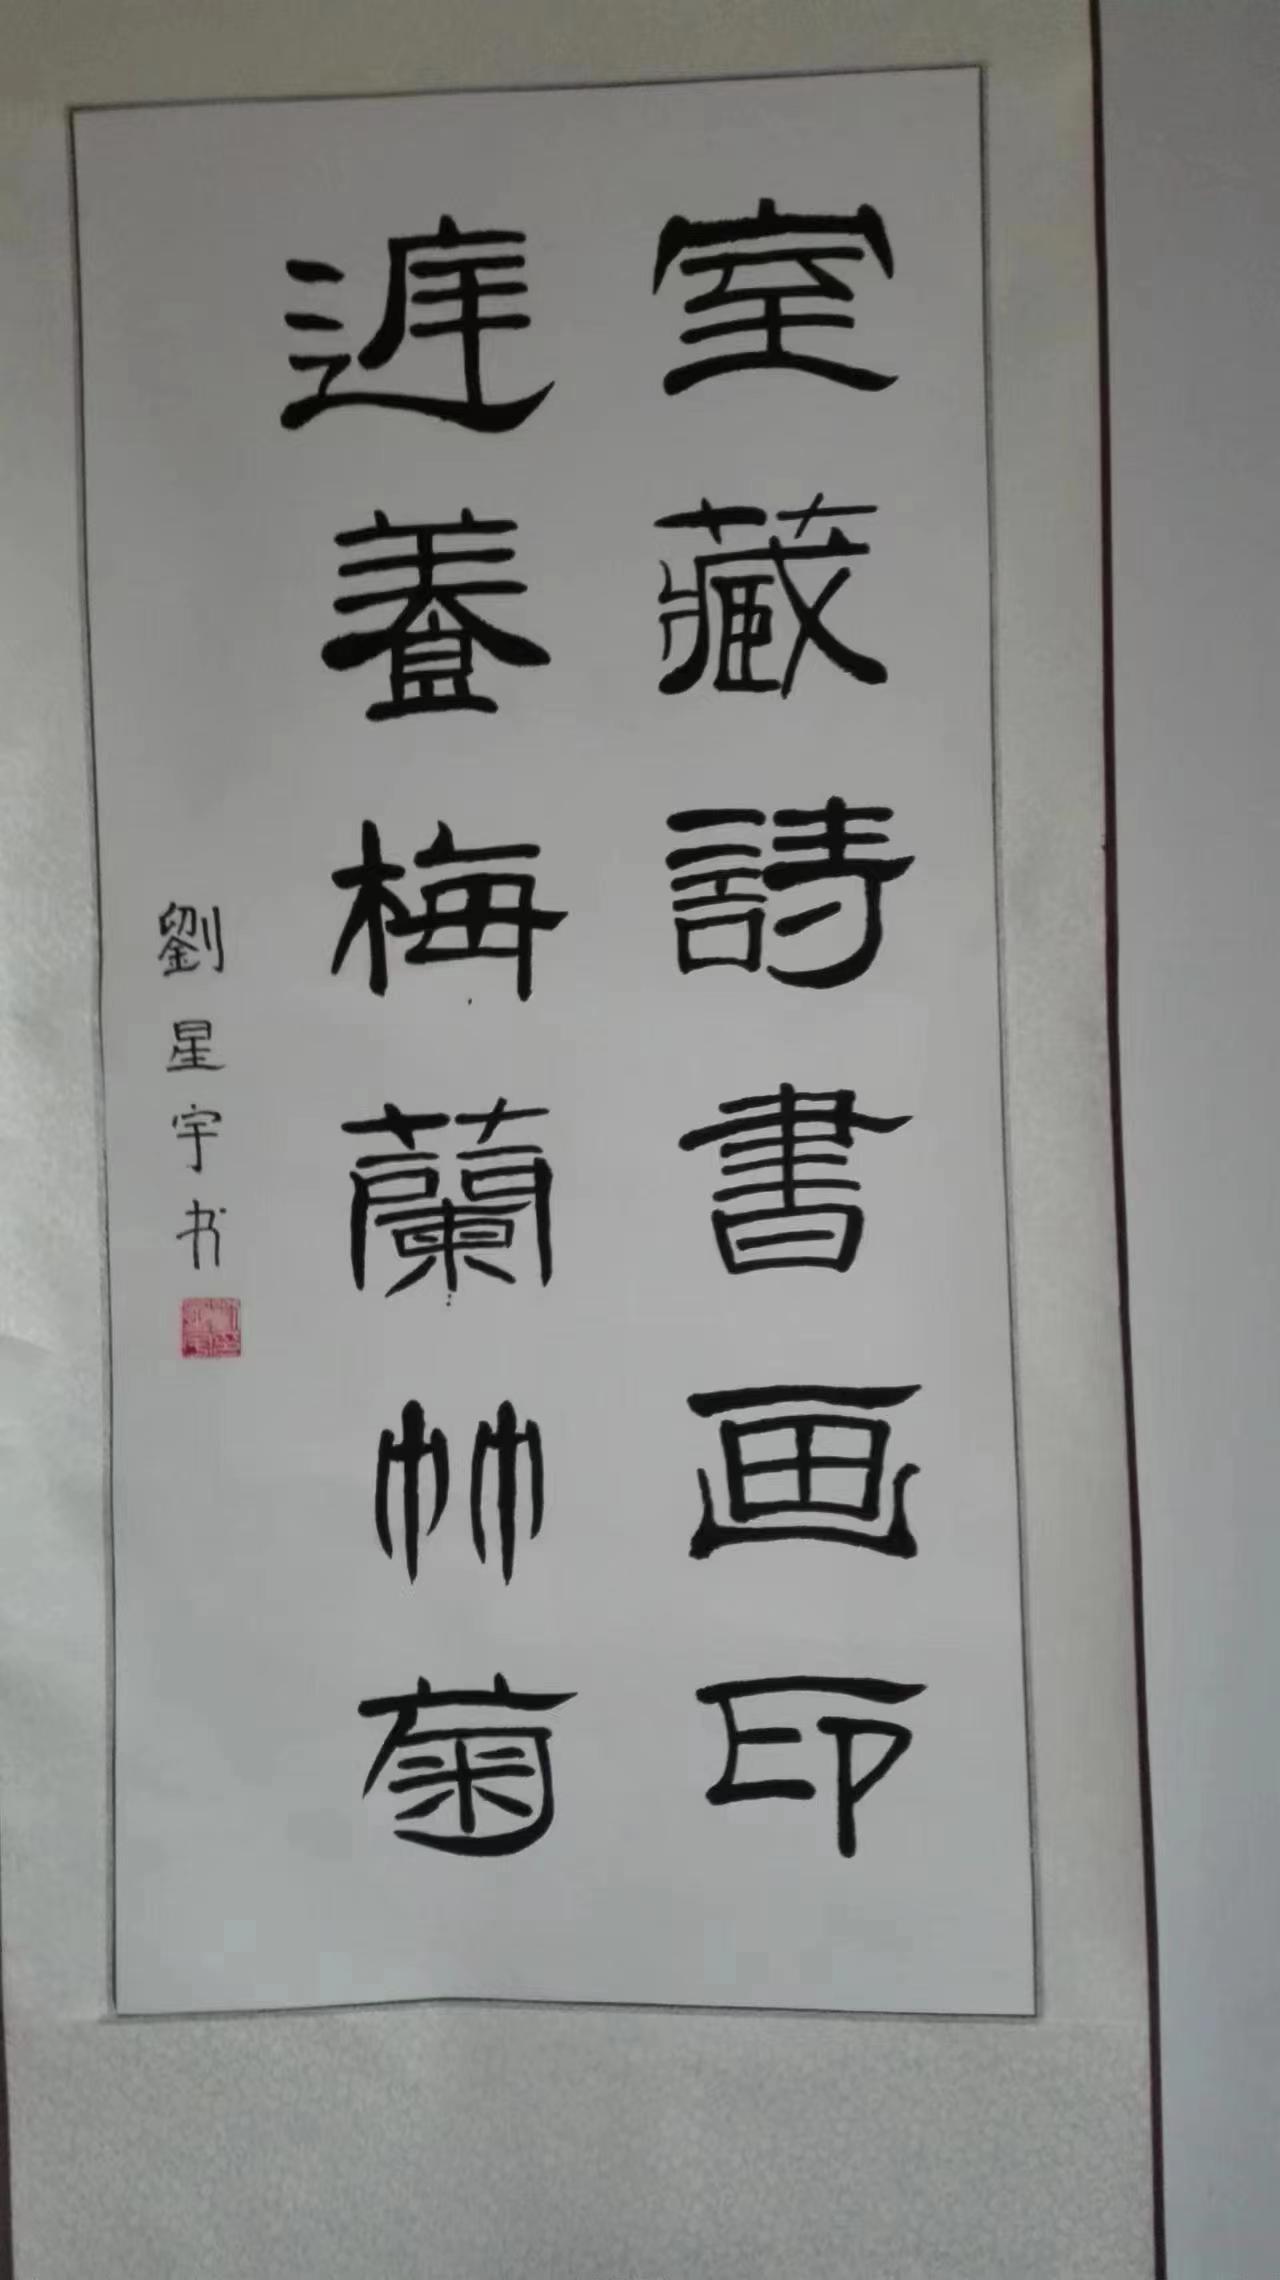 室藏詩書画印
庭養梅蘭竹菊
劉星宇书